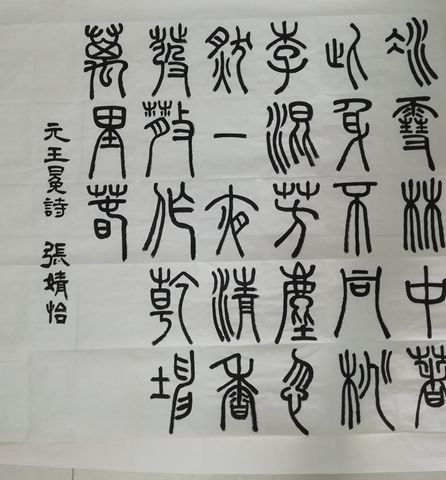 冰雪林中著
此身不同桃
李混芳塵忽
然一夜清香
發散作乾坤
萬里春
元王冕詩 張婧怡